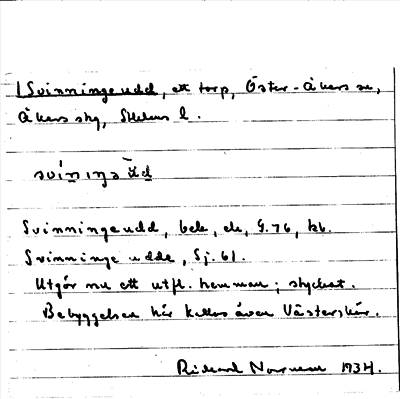 Svinningeudd, ett torp, Öster-Åkers sn,
Åkers skg, Sthlms l.
Svinningeudd, beb, ek, G.76, kb.
Svinninge udde, Sj. 61.
Utgör nu ett utfl. hemman; styckat.
Bebyggelsen här kallas även Västerskär.
Rickard Norman 1934.